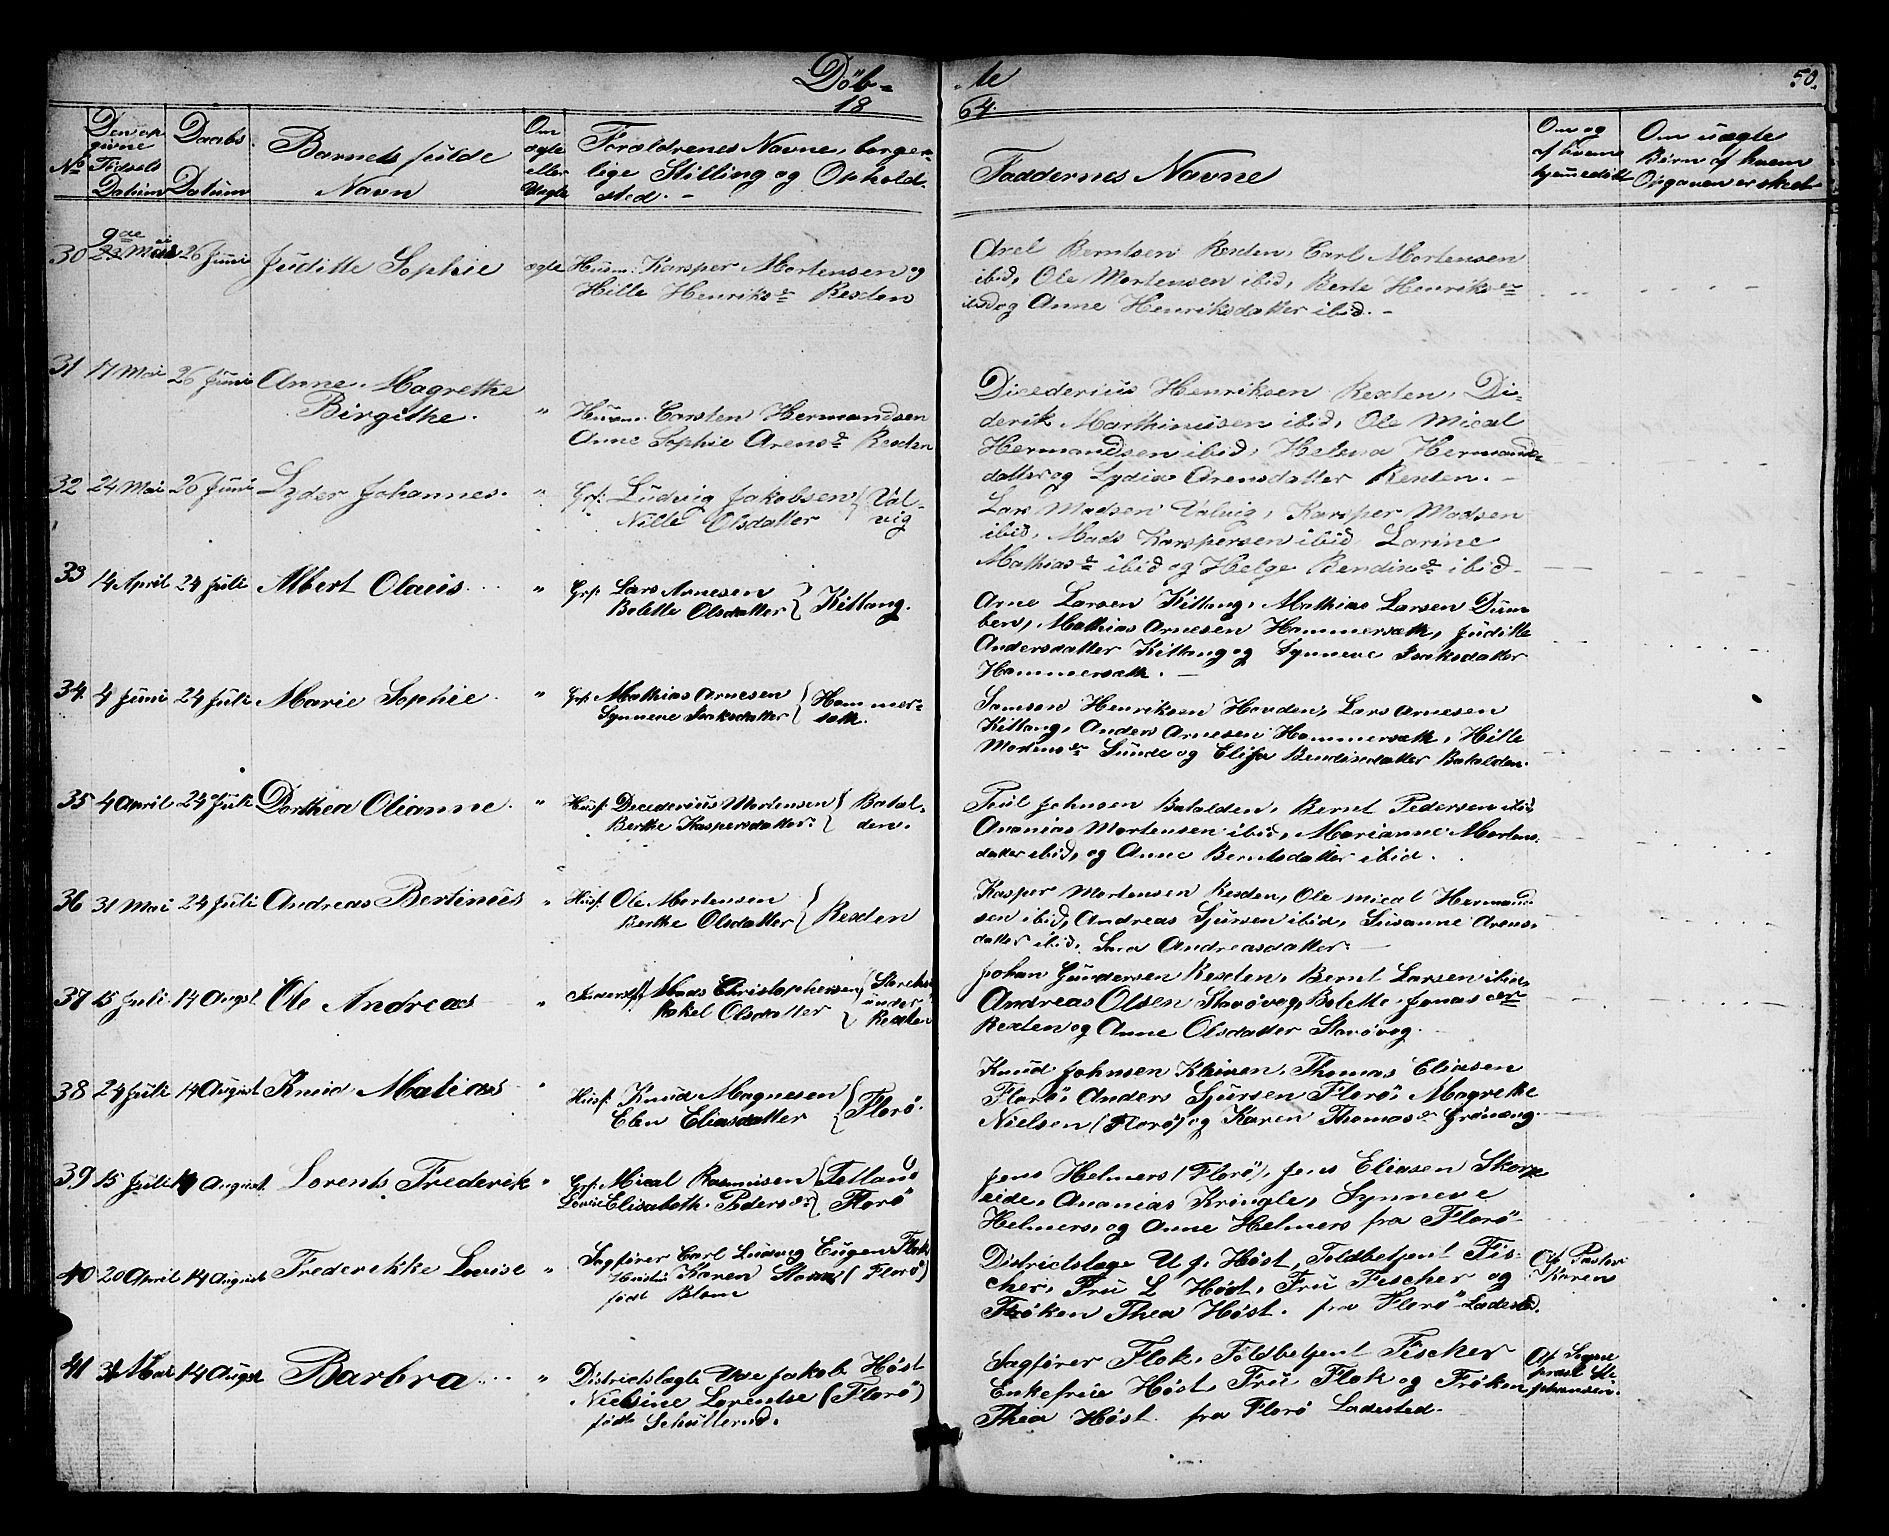 Döb-
te
50.
18
64.
No
Den op
givne
Fødsels
Datum
Daabs
Datum
Barnets fulde
Navn
Om
ægte
eller
Uægte
Forældrenes Navne, borger-
lige Stilling og Ophold-
sted. -
Faddernes Navne
Om og
af hvem
hjemmedöbt
Om uægte
Börn af hvem
Opgaven er skeet
30 9de Mai 26 Juni Juditte Sophie ægte Husm. Kasper Mortensen og
Hille Henriksd. Rexten
Axel Berntsen Rexten, Carl Mortensen
ibid, Ole Mortensen ibid, Berte Henriks
ibid og Anne Henriksdatter ibid. -
31 17 Mai 26 Juni Anne Magrethe
Birgithe. " Husm. Carsten Hermandsen
Anne Sophie Arensd. Rexten
Dicederius Henriksen Rexten, Di-
derik Marthinusen ibid, Ole Mical
Hermandsen ibid, Helena Hermands-
datter og Lydia Arensdatter Rexten. -
32 24 Mai 26 Juni Lyder Johannes. " Grf. Ludvig Jakobsen
Nille Olsdatter } Val-
vig
Lars Madsen Valvig, Kasper Madsen
ibid, Mads Kaspersen ibid, Larine
Mathiasd. ibid og Helge Bendixd. ibid.
33 14 April 24 Juli Albert Olaus. " Grf. Lars Arnesen
Bolette Olsdatter } Kittang.
Arne Larsen Kittang, Mathias Larsen Dum
ben, Mathias Arnesen Hammersæth, Juditte
Andersdatter Kittang og Synneve Isaksdatter
Hammersæth. -
34. 4 Juni 24 Juli Marie Sophie. " Grf. Mathias Arnesen
Synneve Isaksdatter } Hammer-
sæth.
Samson Henriksen Hovden, Lars Arnesen
Kittang, Anders Arnesen Hammersæth, Hille
Mortens Sunde og Elisa Bendixdatter Batalden.
35 4 April 24 Juli Dorthea Olianne. " Husf. Dicederius Mortensen
Berthe Kaspersdatter } Batal-
den.
Poul Johnsen Batalden, Bernt Pedersen ibid
Ananias Mortensen ibid, Marianne Mortens-
datter ibid, og Anne Berntsdatter ibid.
36 31 Mai 24 Juli Andreas Bertinus " Husf. Ole Mortensen
Berthe Olsdatter } Rexten
Kasper Mortensen Rexten, Ole Mical Hermand
sen ibid, Andreas Sjursen ibid, Susanne Arens-
datter ibid, Sara Andreasdatter. -
37 15 Juli 14 Augst. Ole Andreas " Mads Christophersen
Rakel Olsdatter
under
Rexten
Johan Gundersen Rexten, Bernt Larsen ibid,
Andreas Olsen Starøvog, Bolette Jonas
Rexten og Anne Olsdatter Starøvog.
38 24 Juli 14 August Knud Matias " Husf. Knud Magnesen
Elen Eliasdatter } Florö.
Knud Johnsen Thomas Eliasen
Florö, Anders Sjursen Florö, Magrethe
Nielsen (Florö) og Karen Thomasd. Grönæng.
39 15 Juli 14 August. Lorents Frederik " Grf. Mical Rasmusen
Lovise Elisabeth Pedersd. } Tetland
Florö
Jens Helmers (Florö), Jens Eliasen Skorpe
eide, Ananias Kringle, Synneve
Helmers, og Anne Helmers fra Florö
40 20 April 14 August Frederikke Lovise " Sagfører Carl Ludvig Eugen Flok
Karen (Florö)
født Blom
Districtslæge U. J. Höst, Toldbetjent Fis-
cher, Fru L Höst, Fru Fischer og
Frøken Thea Höst. fra Florö Ladested.
Af Pastor
41 31 Mai 14 Augst Barbra " Districtslægte Uve Jakob Höst
Nielsine Lorentse (Florö)
født
Sagfører Flok, Toldbetjent Fischer
Enkefrue Höst, Fru Flok og Frøken
Thea Höst. fra Florö Ladested.
Af Sogne
præst Ste
phansen.